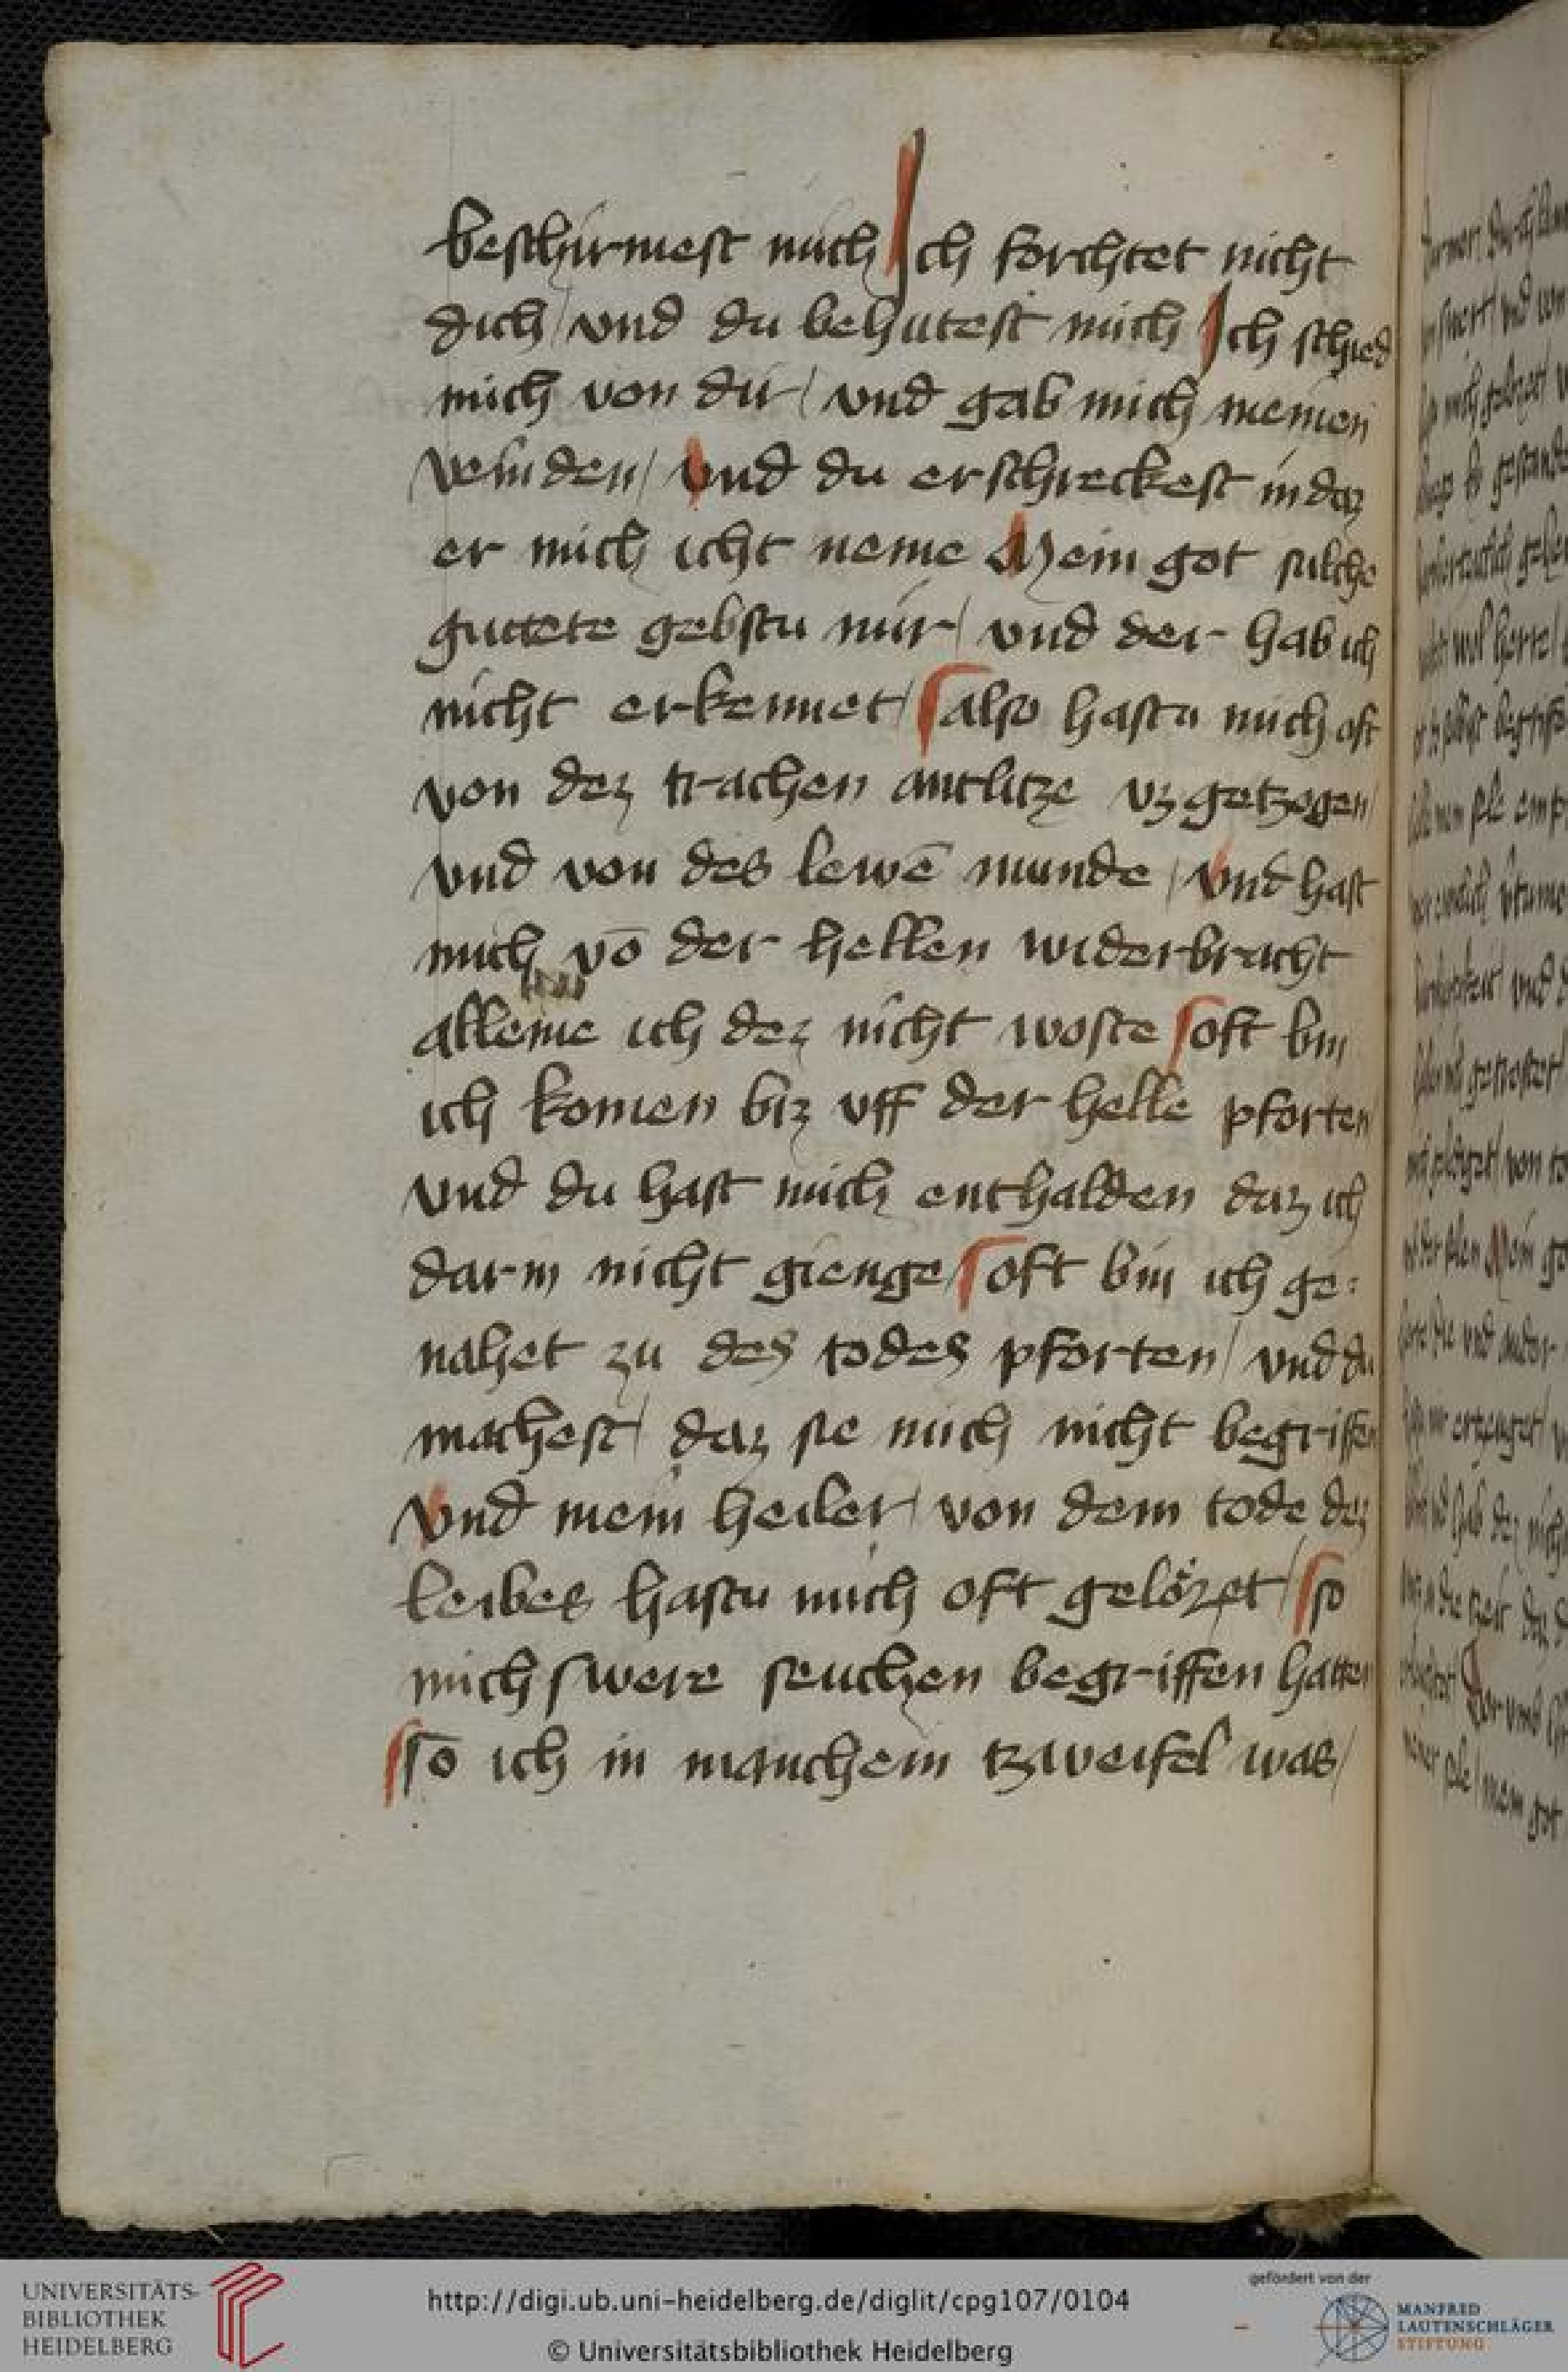 beschirmest mich Ich forchtet nicht
dich / vnd du behutest mich Ich schied
mich von dir / vnd gab mich meinen
veinden / vnd du erschreckest in daz
er mich icht neme Mein got sulche
guttete gebstu mir / vnd der hab ich
nicht erkennet / also hastu mich oft
von dez trachen antlitze vzgetzogen /
vnd von des lewē munde / vnd hast
mich vō der hellen widerbracht
alleine ich dez nicht woste oft bin
ich komen biz vff der helle pforten
vnd du hast mich enthalden daz ich
darin nicht gienge / oft bin ich ge=
nahet zu des todes pforten / vnd du
machest / daz sie mich nicht begriffen
vnd mein heiler / von dem tode dez
leibes hastu mich oft gelözet / so
mich swere seuchen begriffen hatten
so ich in manchem tzweifel was /
UNIVERSITÄTS-
BIBLIOTHEK
HEIDELBERG
http://digi.ub.uni-heidelberg.de/diglit/cpg107/0104
© Universitätsbibliothek Heidelberg
gefördert von der
MANFRED
LAUTENSCHLÄGER
STIFTUNG